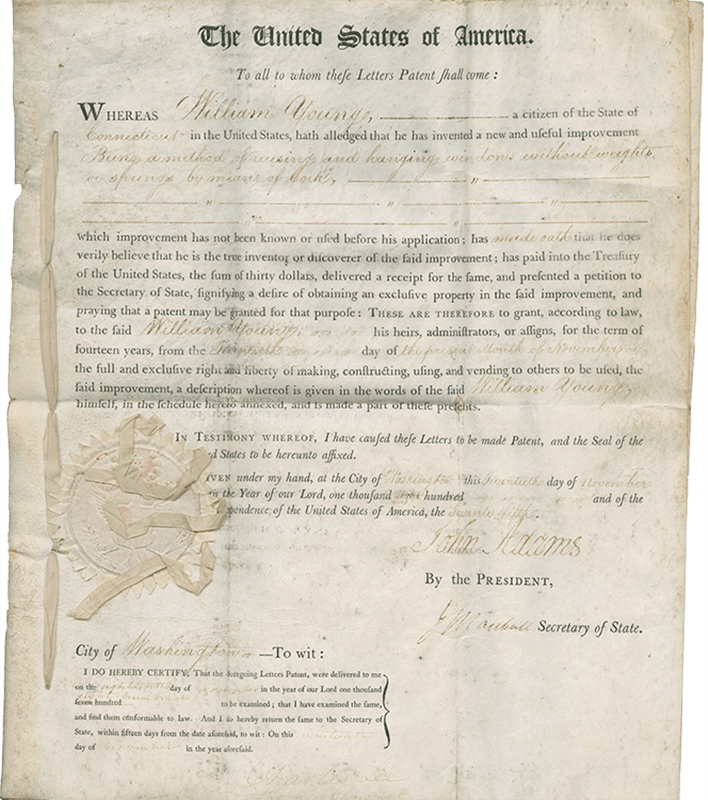 The United States of America.
To all to whom theſe Letters Patent ſhall come:
WHEREAS William Young, a citizen of the State of
Connecticut in the United States, hath alledged that he has invented a new and uſeful improvement
Being a method of raising and hanging windows without weights
or springs by means of Cork,
which improvement has not been known or uſed before his application; has made oath that he does
verily believe that he is the true inventor or diſcoverer of the ſaid improvement; has paid into the Treaſury
of the United States, the ſum of thirty dollars, delivered a receipt for the ſame, and preſented a petition to
the Secretary of State, ſignifying a deſire of obtaining an excluſive property in the ſaid improvement, and
praying that a patent may be granted for that purpoſe: THESE ARE THEREFORE to grant, according to law,
to the ſaid William Young, his heirs, adminiſtrators, or aſſigns, for the term of
fourteen years, from the Twentieth day of the present Month of November
the full and excluſive right and liberty of making, conſtructing, uſing, and vending to others to be uſed, the
ſaid improvement, a deſcription whereof is given in the words of the ſaid William Young,
himſelf, in the ſchedule hereto annexed, and is made a part of theſe preſents.
IN TESTIMONY WHEREOF, I have cauſed theſe Letters to be made Patent, and the Seal of the
d States to be hereunto affixed.
IVEN under my hand, at the City of Washington this Twentieth day of November
in the Year of our Lord, one thouſand eight hundred and of the
pendence of the United States of America, the Twenty fifth.
John Adams
By the PRESIDENT,
J Marshall Secretary of State.
City of Washington —To wit:
I DO HEREBY CERTIFY, That the foregoing Letters Patent, were delivered to me
on the eighteenth day of November in the year of our Lord one thouſand
ſeven hundred to be examined; that I have examined the ſame,
and find them conformable to law. And I do hereby return the ſame to the Secretary of
State, within fifteen days from the date aforeſaid, to wit: On this nineteenth
day of November in the year aforeſaid.
Charles Lee